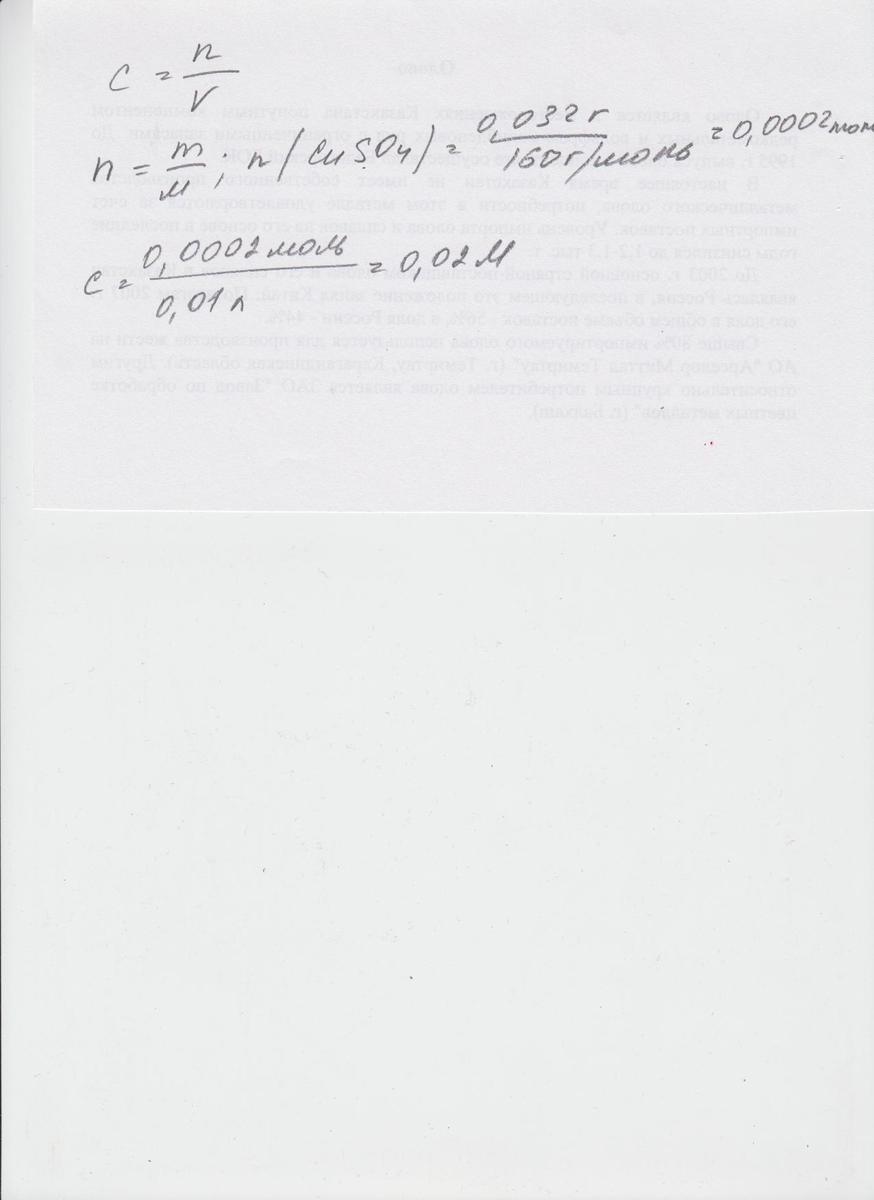 c = n/V
n = m/M; n(CuSO4) = 0,032 г/160 г/моль = 0,0002 мол
c = 0,0002 моль/0,01 л = 0,02 М
Олово
В настоящее время Казахстан не имеет собственного производства
металлического олова, потребности в этом металле удовлетворяются за счет
импортных поставок. Уровень импорта олова и сплавов на его основе в последние
годы снизился до 1,2-1,3 тыс. т.
являлась Россия, в последующем это положение занял Китай.
его доля в общем объеме поставок - 56%, а доля России - 44%.
Свыше 80% импортируемого олова используется для производства жести на
АО "Арселор Миттал Темиртау" (г. Темиртау, Карагандинская область). Другим
относительно крупным потребителем олова является ЗАО "Завод по обработке
цветных металлов" (г. Балхаш).